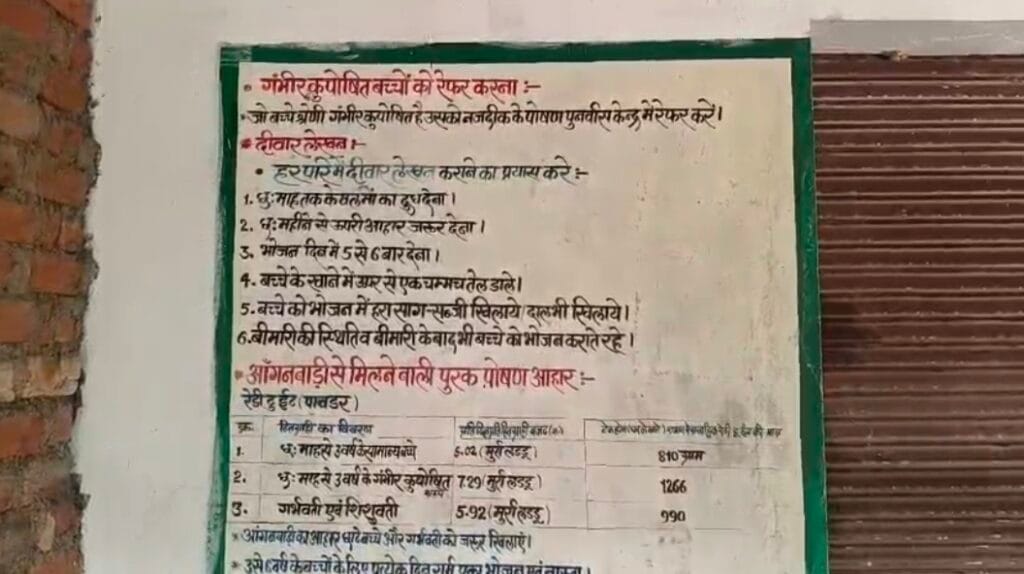 • गंभीर कुपोषित बच्चों को रेफर करना :-
• जो बच्चे श्रेणी गंभीर कुपोषित है उसको नजदीक के पोषण पुनर्वास केन्द्र में रेफर करें।
• दीवार लेखन :-
• हर परि में दीवार लेखन कराने का प्रयास करे :-
1. छ: माह तक केवल माँ का दुध देना।
2. छ: महीने से ऊपरी आहार जरूर देना।
3. भोजन दिन में 5 से 6 बार देना।
4. बच्चे के खाने में ऊपर से एक चम्मच तेल डाले।
5. बच्चे को भोजन में हरा साग-सब्जी खिलाये दाल भी खिलाये।
6. बीमारी की स्थिति व बीमारी के बाद भी बच्चे को भोजन कराते रहे।
• आँगनवाड़ी से मिलने वाली पुरक पोषण आहार :-
रेडी टु ईट (पावडर)
क्र. हितग्राही का विवरण
1. छ: माह से 3 वर्ष के सामान्य बच्चे 5.02 (मुर्रा लड्डू) 810 ग्राम
2. छ: माह से 3 वर्ष के गंभीर कुपोषित 7.29 (मुर्रा लड्डू) 1266
3. गर्भवती एवं शिशुवती 5.92 (मुर्रा लड्डू) 990
* आंगनबाड़ी का आहार छोटे बच्चे और गर्भवती को जरूर खिलाएं।
* 3 से 6 वर्ष के बच्चों के लिए प्रत्येक दिन गर्म पका भोजन एवं नाश्ता।